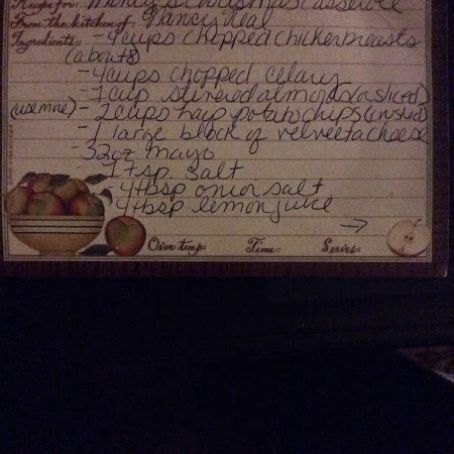 Recipe for: Christmas Casserole
From the kitchen of Nancy Neal
Ingredients: -4 cups chopped chicken breasts
(about 8)
-4 cups chopped celary
-1 cup slivered almonds (or sliced)
(use more) -2 cups haip potato chips (crushed)
-1 large block of velveeta cheese
-32 oz mayo
1 tsp. salt
4 tbsp onion salt
4 tbsp lemon juice
→
Oven temp: Time: Serves: